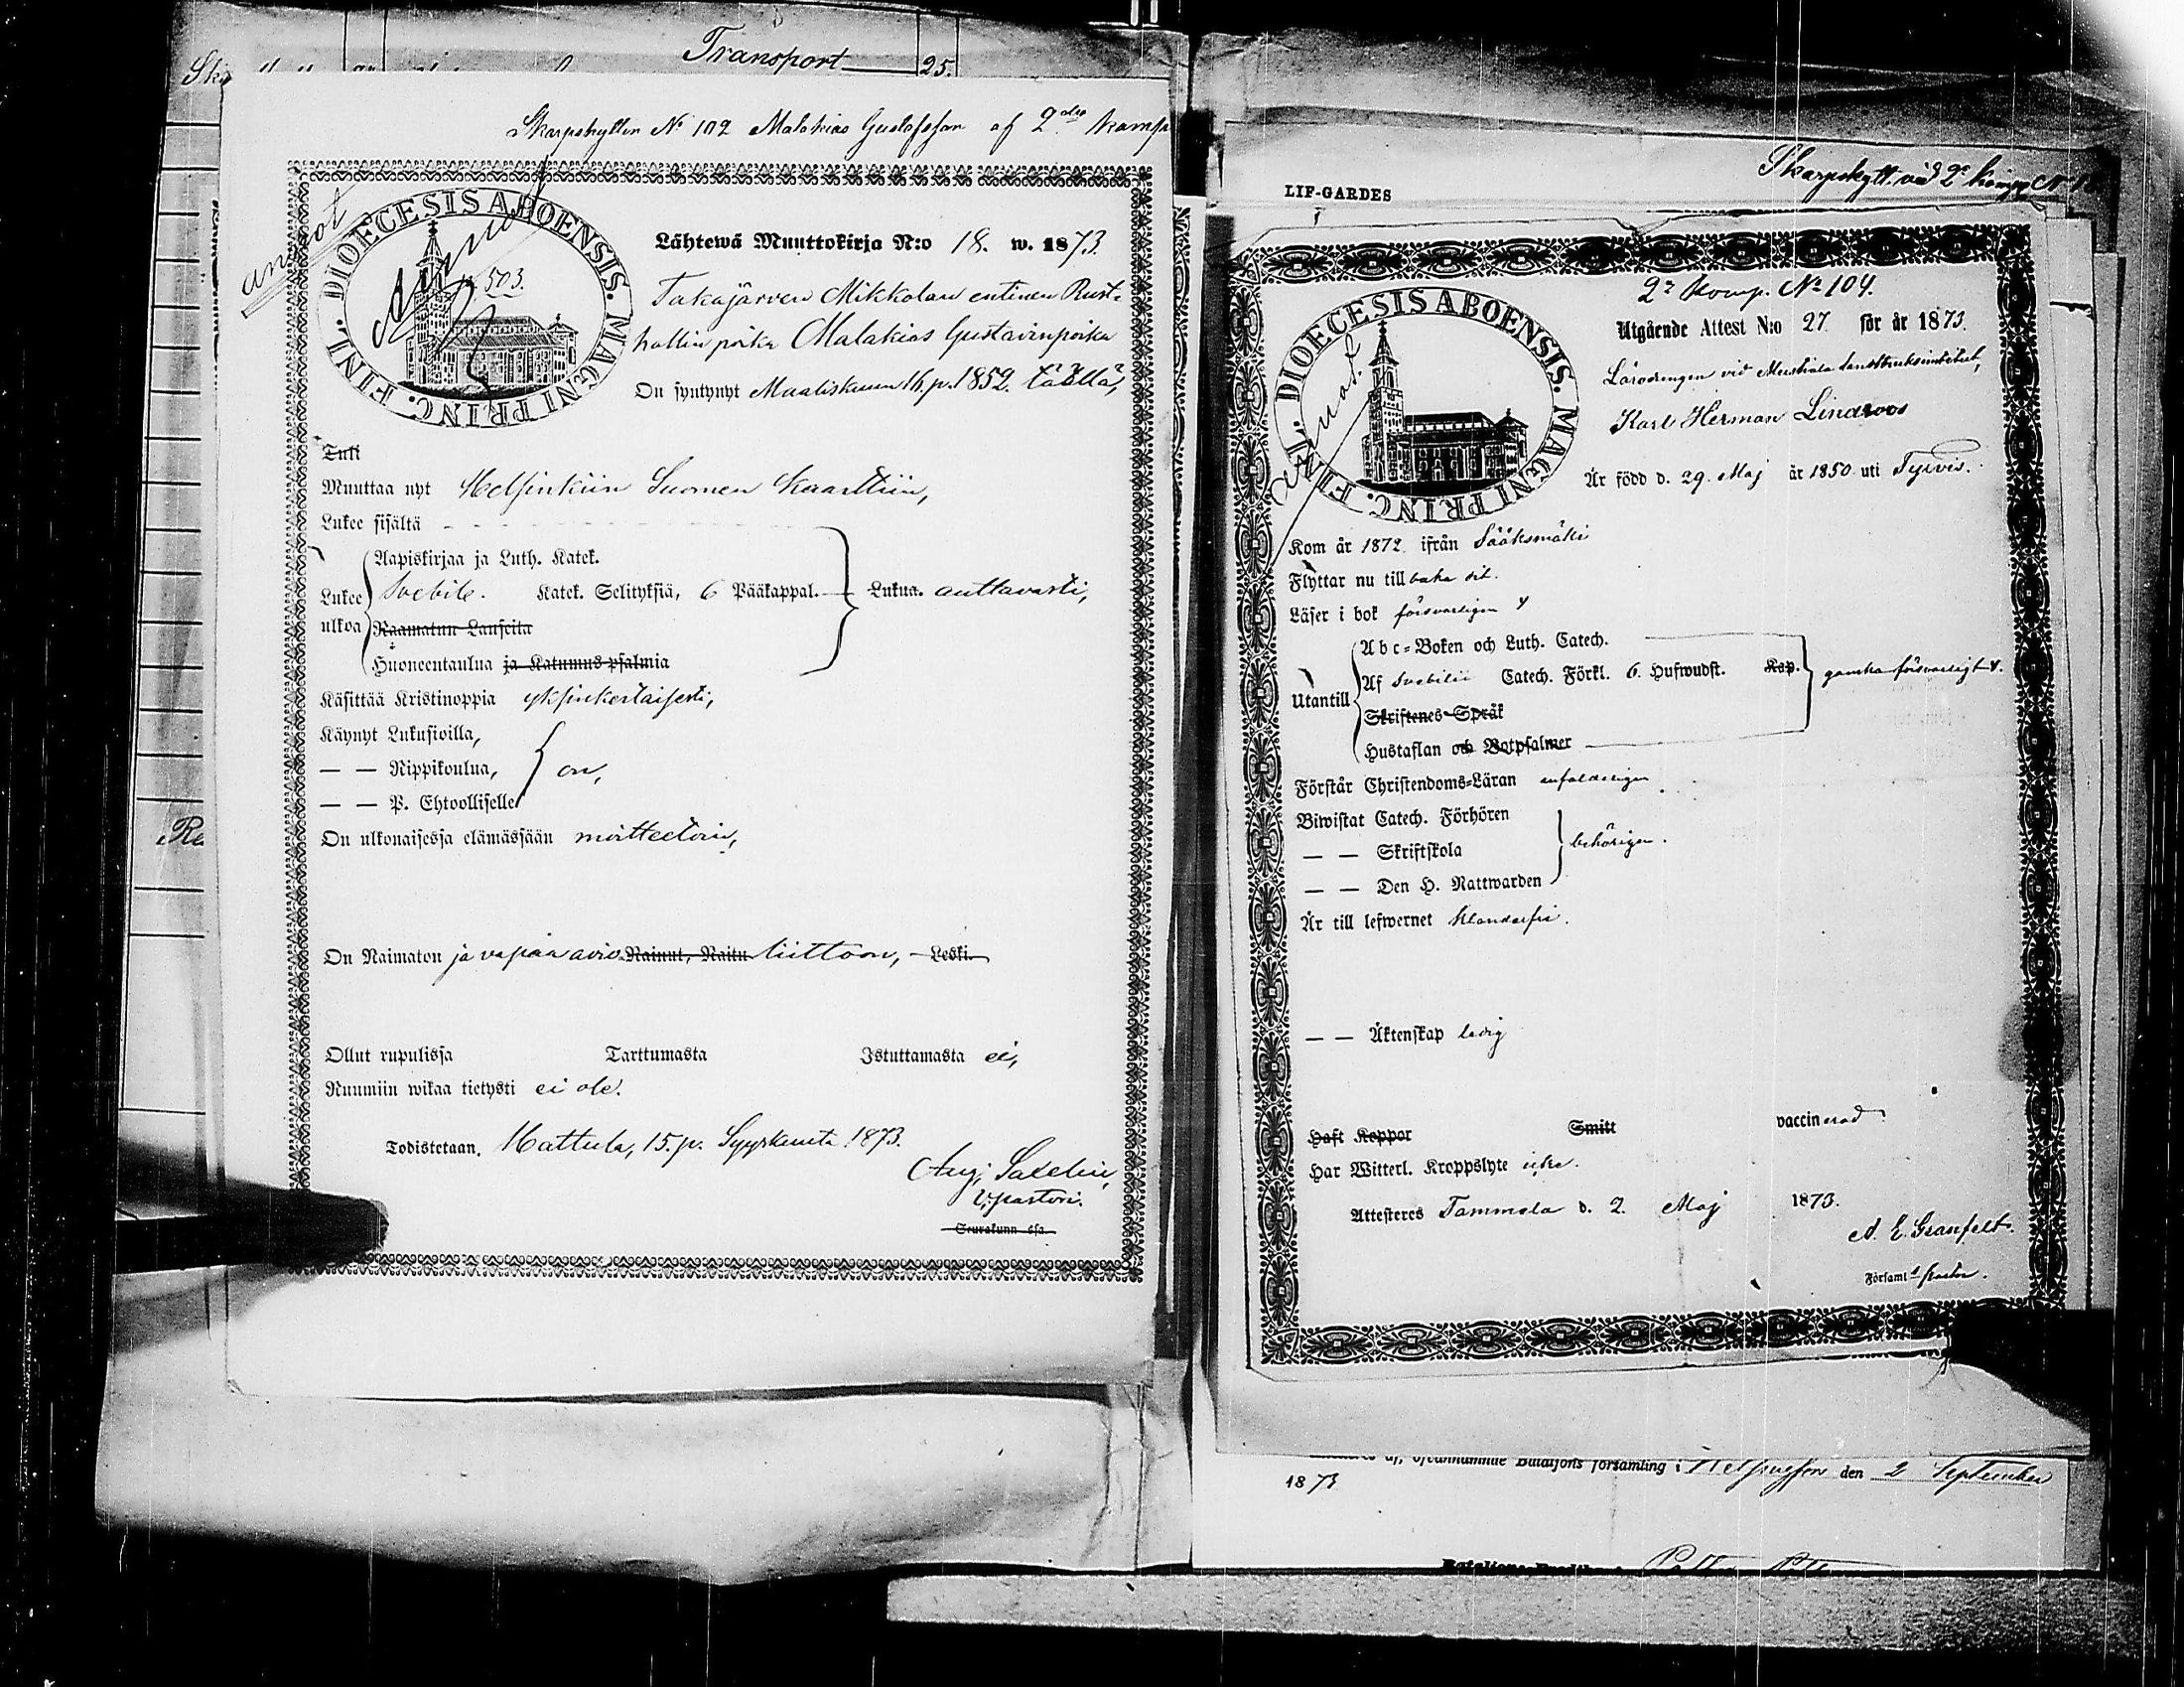 Transport 25.
Skarpskytten No 102 Malakias Gustafsson af 2dra Komp
annot
DIOECESIS ABOENSIS. MAGNI PRINC. FINL.
503.
Lähtewä Muuttokirja N:o 18. w. 1873.
Takajärven Mikkolan entinen Rust-
hollin poika Malakias Gustavinpoika
On syntynyt Maaliskuun 16. p. 1852. täällä,
Tuli
Muuttaa nyt Helsinkiin Suomen Kaartiin,
Lukee sisältä
Aapiskirjaa ja Luth. Katek.
Lukee Svebile. Katek. Selityksiä, 6 Pääkappal. Lukua. auttavasti,
ulkoa Raamatun Lauseita
Huoneentaulua ja Katumus-psalmia
Käsittää Kristinoppia yksinkertaisesti,
Käynyt Lukusioilla,
— — Rippikoulua, on,
— — P. Ehtoolliselle
On ulkonaisessa elämässään moitteetoin,
On Naimaton ja vapaa avio Nainut, Naitu liittoon, Leski.
Ollut rupulissa Tarttumasta Istuttamasta ei,
Ruumiin wikaa tietysti ei ole.
Todistetaan, Hattula, 15. p. Syyskuuta 1873.
Aug. Saxelin,
V. pastori.
Seurakunn ssa.
LIF-GARDES
Skarpskytt vid 2a Komp No
2a Komp. No 104.
DIOECESIS ABOENSIS. MAGNI PRINC. FINL.
Utgående Attest N:o 27 för år 1873.
Lärodrengen vid Mustiala landtbruksinstitut,
Karl Herman Lindroos
Är född d. 29. Maj år 1850 uti Tyrvis.
Kom år 1872 ifrån Sääksmäki
Flyttar nu till baka dit.
Läser i bok försvarligen
Abc-Boken och Luth. Catech.
Utantill Af Svebilii Catech. Förkl. 6. Hufwudst. Kap. ganska försvarligt
Skriftenes Språk
Hustaflan och Botpsalmer
Förstår Christendoms-Läran enfaldeligen
Biwistat Catech. Förhören
— — Skriftskola behörigen.
— — Den H. Nattwarden
Är till lefwernet klanderfri.
— — Äktenskap ledig
Haft Koppor Smitt vaccinerad
Har Witterl. Kroppslyte icke.
Attesteres Tammela d. 2 Maj 1873.
A. E. Granfelt.
Församl s pastor.
Bataljons församling i Helsingfors den 2 September
1873